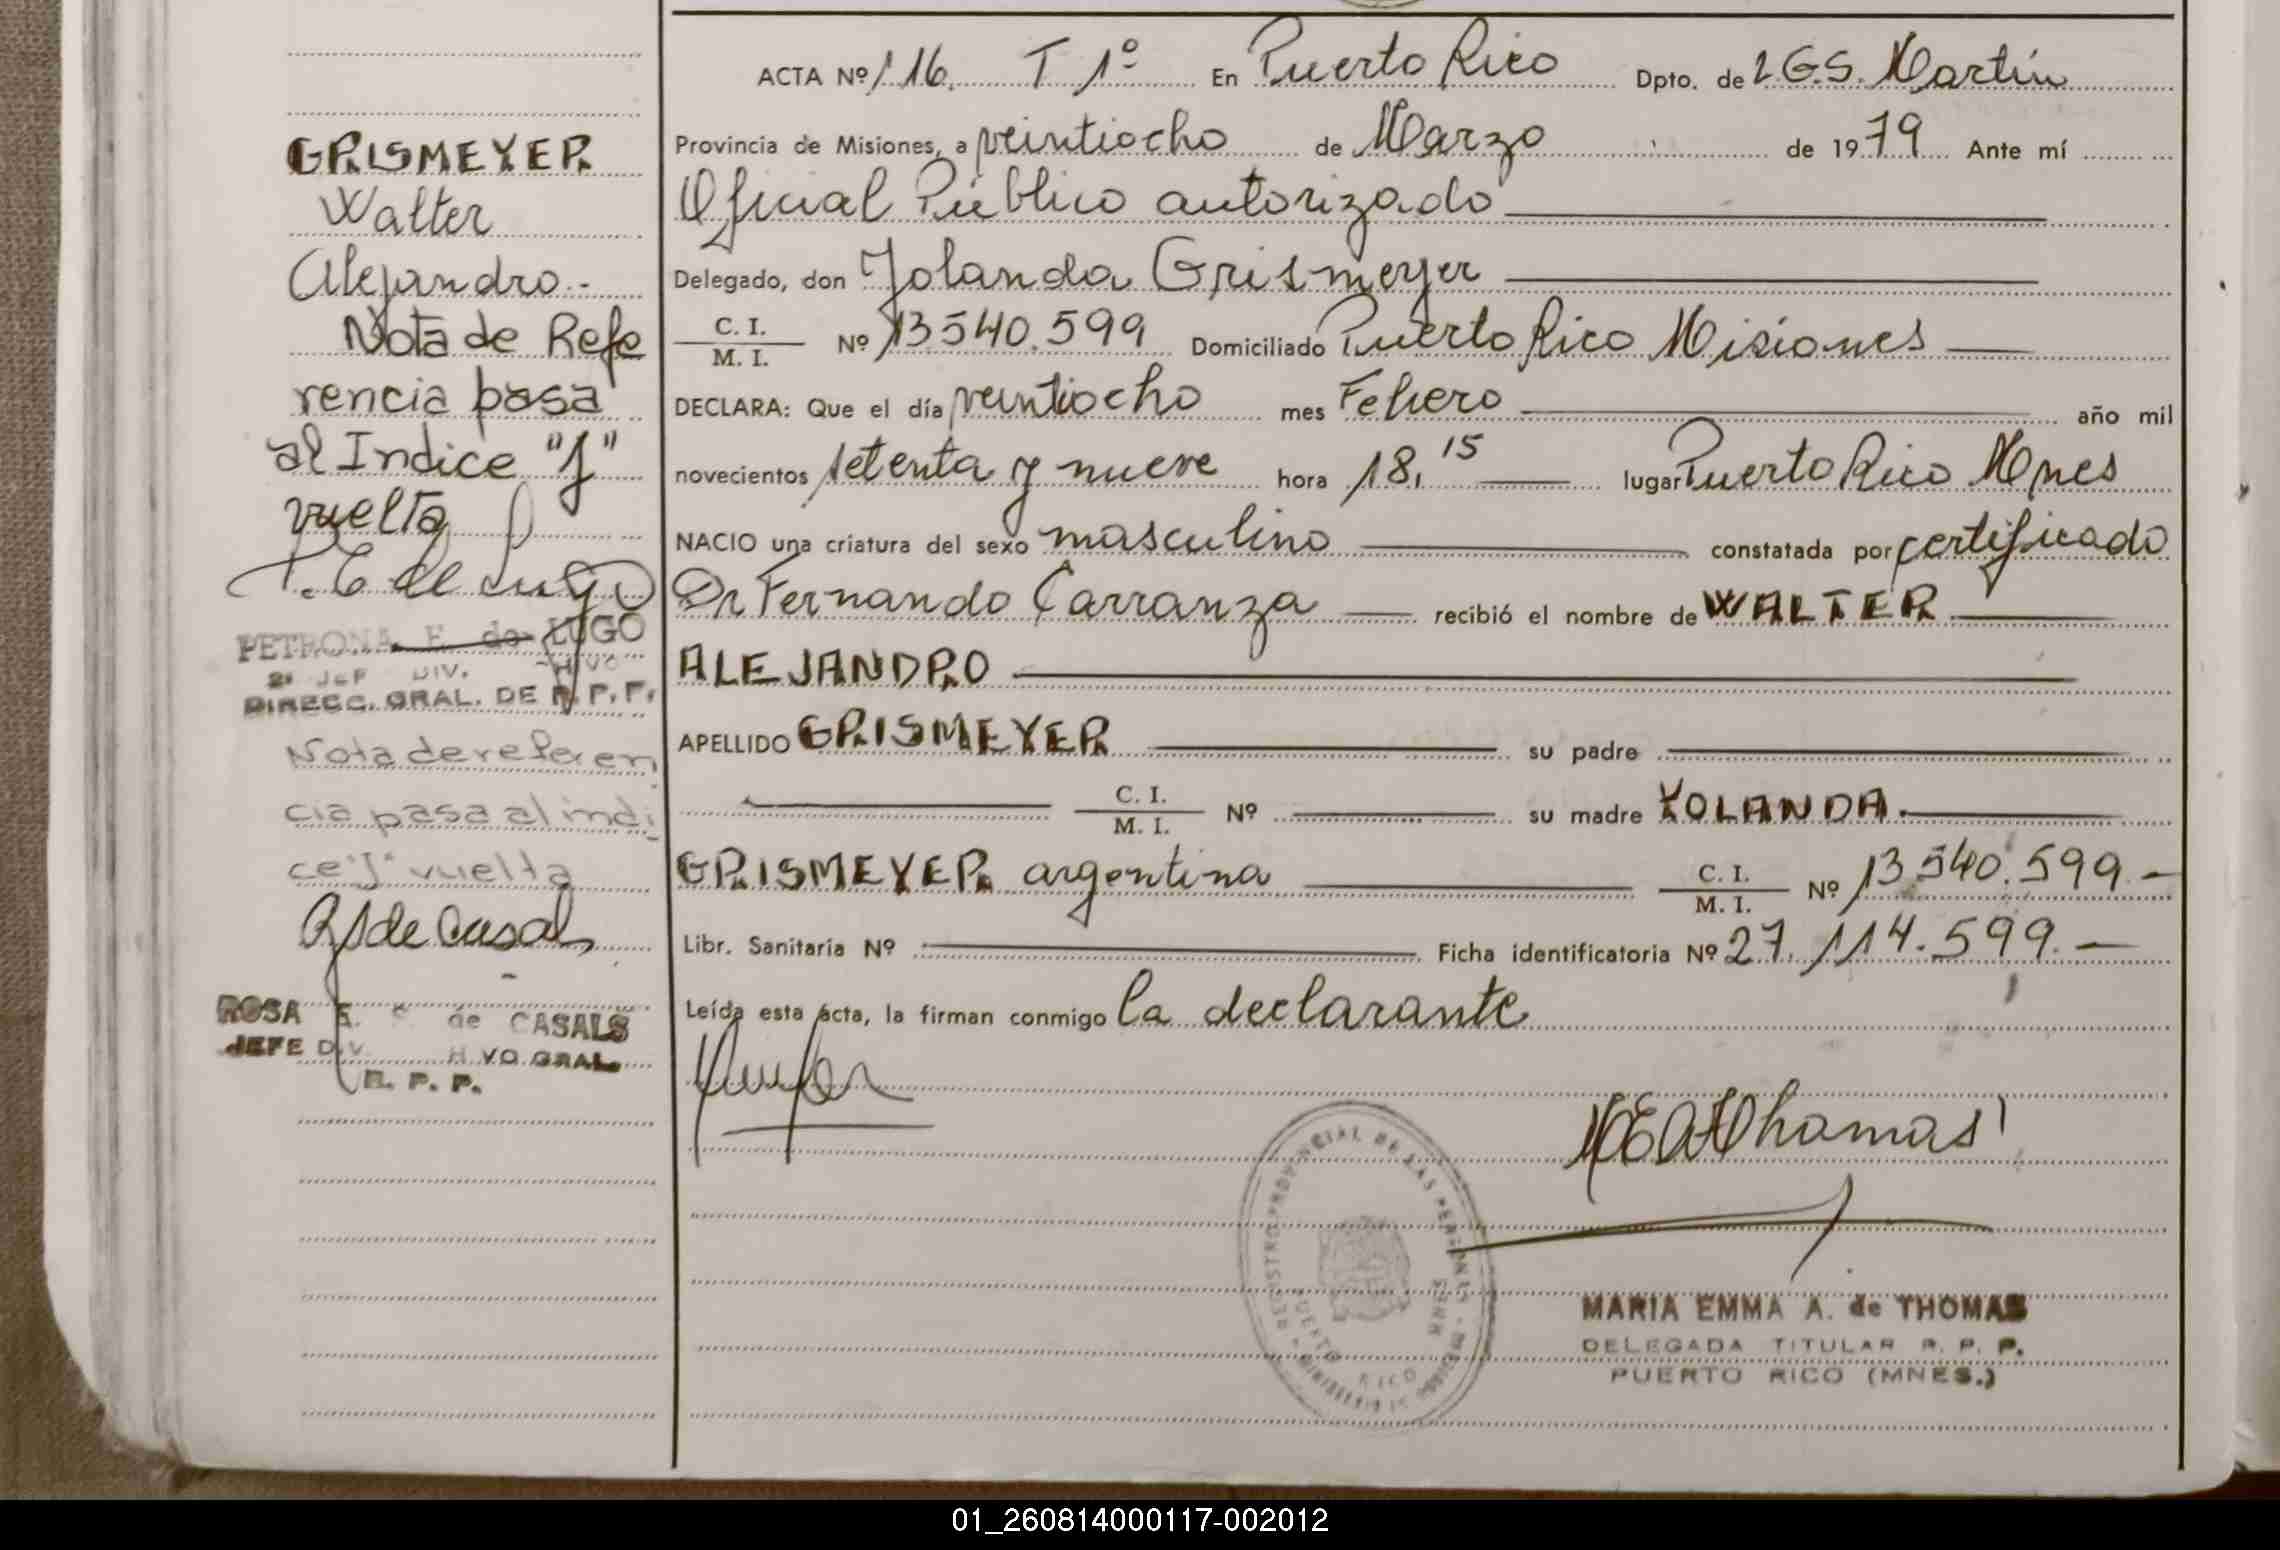 ACTA Nº 116. T 1º En Puerto Rico Dpto. de L.G.S. Martín
Provincia de Misiones, a veintiocho de Marzo de 1979 Ante mí
Oficial Público autorizado
Delegado, don Yolanda Grismeyer
C. I.
M. I. Nº 13540.599 Domiciliado Puerto Rico Misiones
DECLARA: Que el día veintiocho mes Febrero año mil
novecientos setenta y nueve hora 18,15 lugar Puerto Rico Mnes
NACIO una criatura del sexo masculino constatada por certificado
Dr Fernando Carranza recibió el nombre de WALTER
ALEJANDRO
APELLIDO GRISMEYER su padre
C. I.
M. I. Nº su madre YOLANDA.
GRISMEYER argentina C. I.
M. I. Nº 13540.599.-
Libr. Sanitaria Nº Ficha identificatoria Nº 27.114.599.-
Leída esta acta, la firman conmigo la declarante
MEAdThomas
REGISTRO PROVINCIAL DE LAS PERSONAS
PUERTO RICO
MARIA EMMA A. de THOMAS
DELEGADA TITULAR R. P. P.
PUERTO RICO (MNES.)
GRISMEYER
Walter
Alejandro.-
Nota de Refe
rencia pasa
al Indice "J"
vuelta
P. E. de Lugo
PETRONA E. de LUGO
2º JEF DIV. HIVO
DIRECC. GRAL. DE R. P. P.
Nota de referen
cia pasa al indi
ce "J" vuelta
RS de Casals
ROSA E. S. de CASALS
JEFE DIV. HIVO GRAL.
R. P. P.
01_260814000117-002012